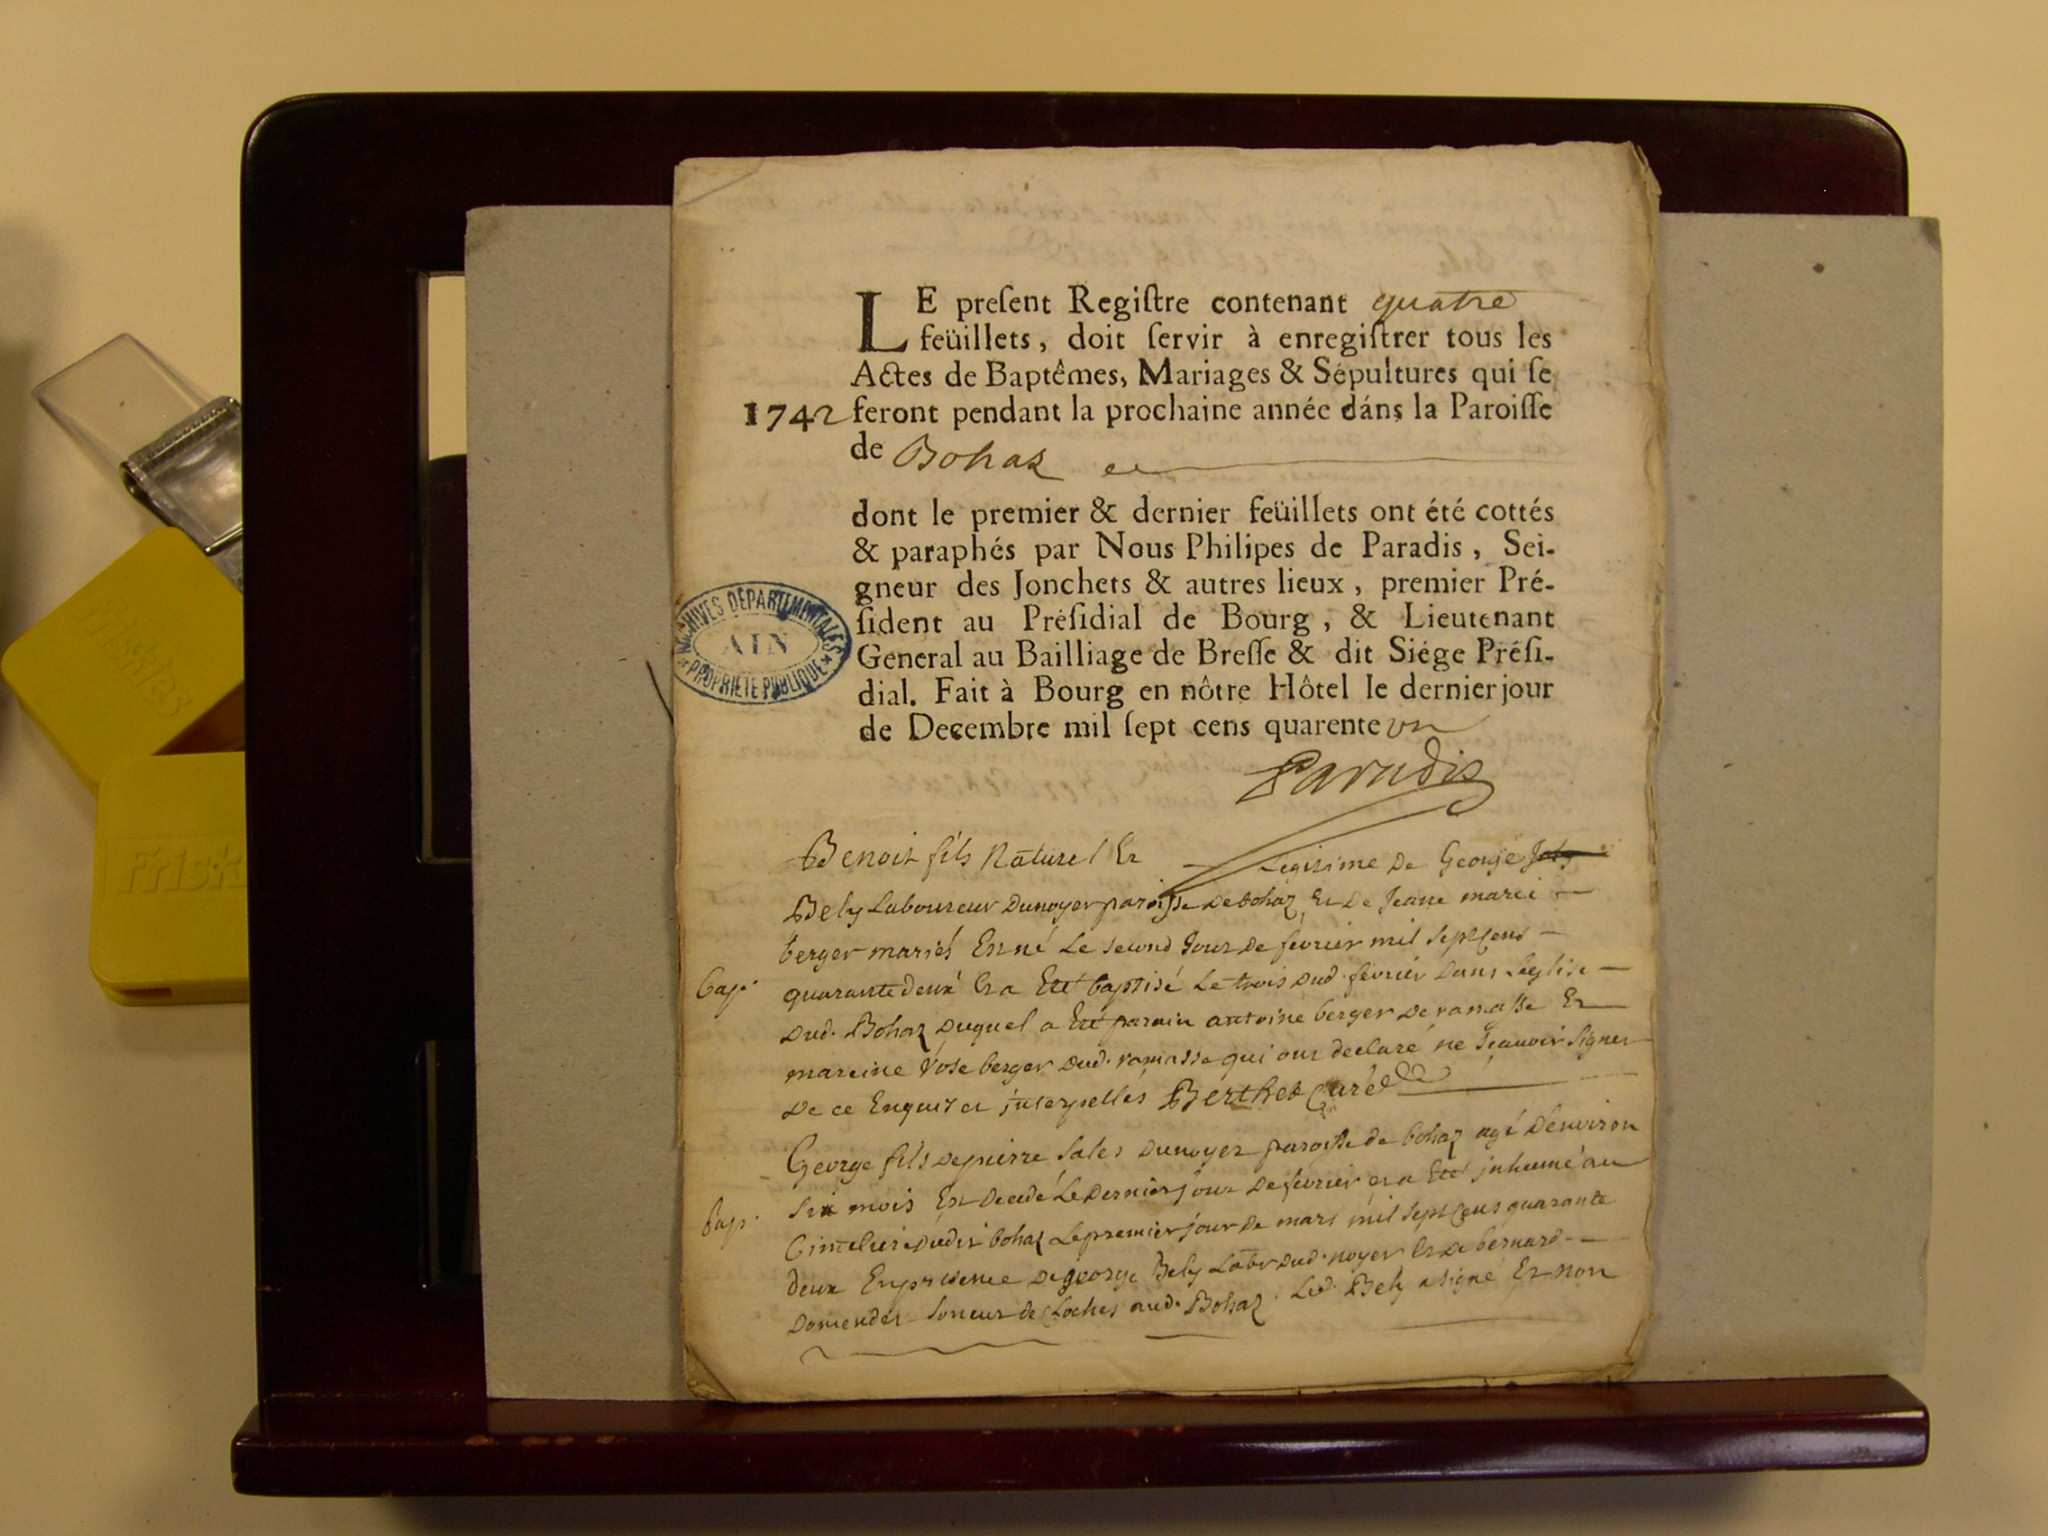 LE preſent Regiſtre contenant quatre
feüillets, doit ſervir à enregiſtrer tous les
Actes de Baptêmes, Mariages & Sépultures qui ſe
1742 feront pendant la prochaine année dáns la Paroiſſe
de Bohaz
dont le premier & dernier feüillets ont été cottés
& paraphés par Nous Philipes de Paradis, Sei-
gneur des Jonchets & autres lieux, premier Pré-
ſident au Préſidial de Bourg, & Lieutenant
General au Bailliage de Breſſe & dit Siége Préſi-
dial. Fait à Bourg en nôtre Hôtel le dernier jour
de Decembre mil ſept cens quarente un
Paradis
ARCHIVES DÉPARTEMENTALES
AIN
* PROPRIÉTÉ PUBLIQUE *
Benoit fils Naturel Et Legitime De George
Bely Laboureur Dunoyer paroisse De bohaz Et De Jeane marie
berger mariés Est né Le second Jour De fevrier mil sept cens
quarante deux Et a Eté baptisé Le trois dud. fevrier Dans Leglise
Dud. Bohaz Duquel a Eté parain antoine berger De ramasse Et
mareine rose berger Dud. ramasse qui ont declaré ne scauoir signer
De ce Enquis et interpellés Berthet Curé
George fils De pierre Sales Dunoyer paroisse de bohaz agé Denviron
Six mois Est Decedé Le Dernier jour De fevrier et a Eté inhumé au
Cimetiere Dudit bohaz Le premier jour De mars mil sept cens quarante
deux En presence De george Bely Labr Dud. noyer Et De bernard
Domender Soneur de Cloches aud. Bohaz Led. Bely a signé Et non
Friskies
Frisk